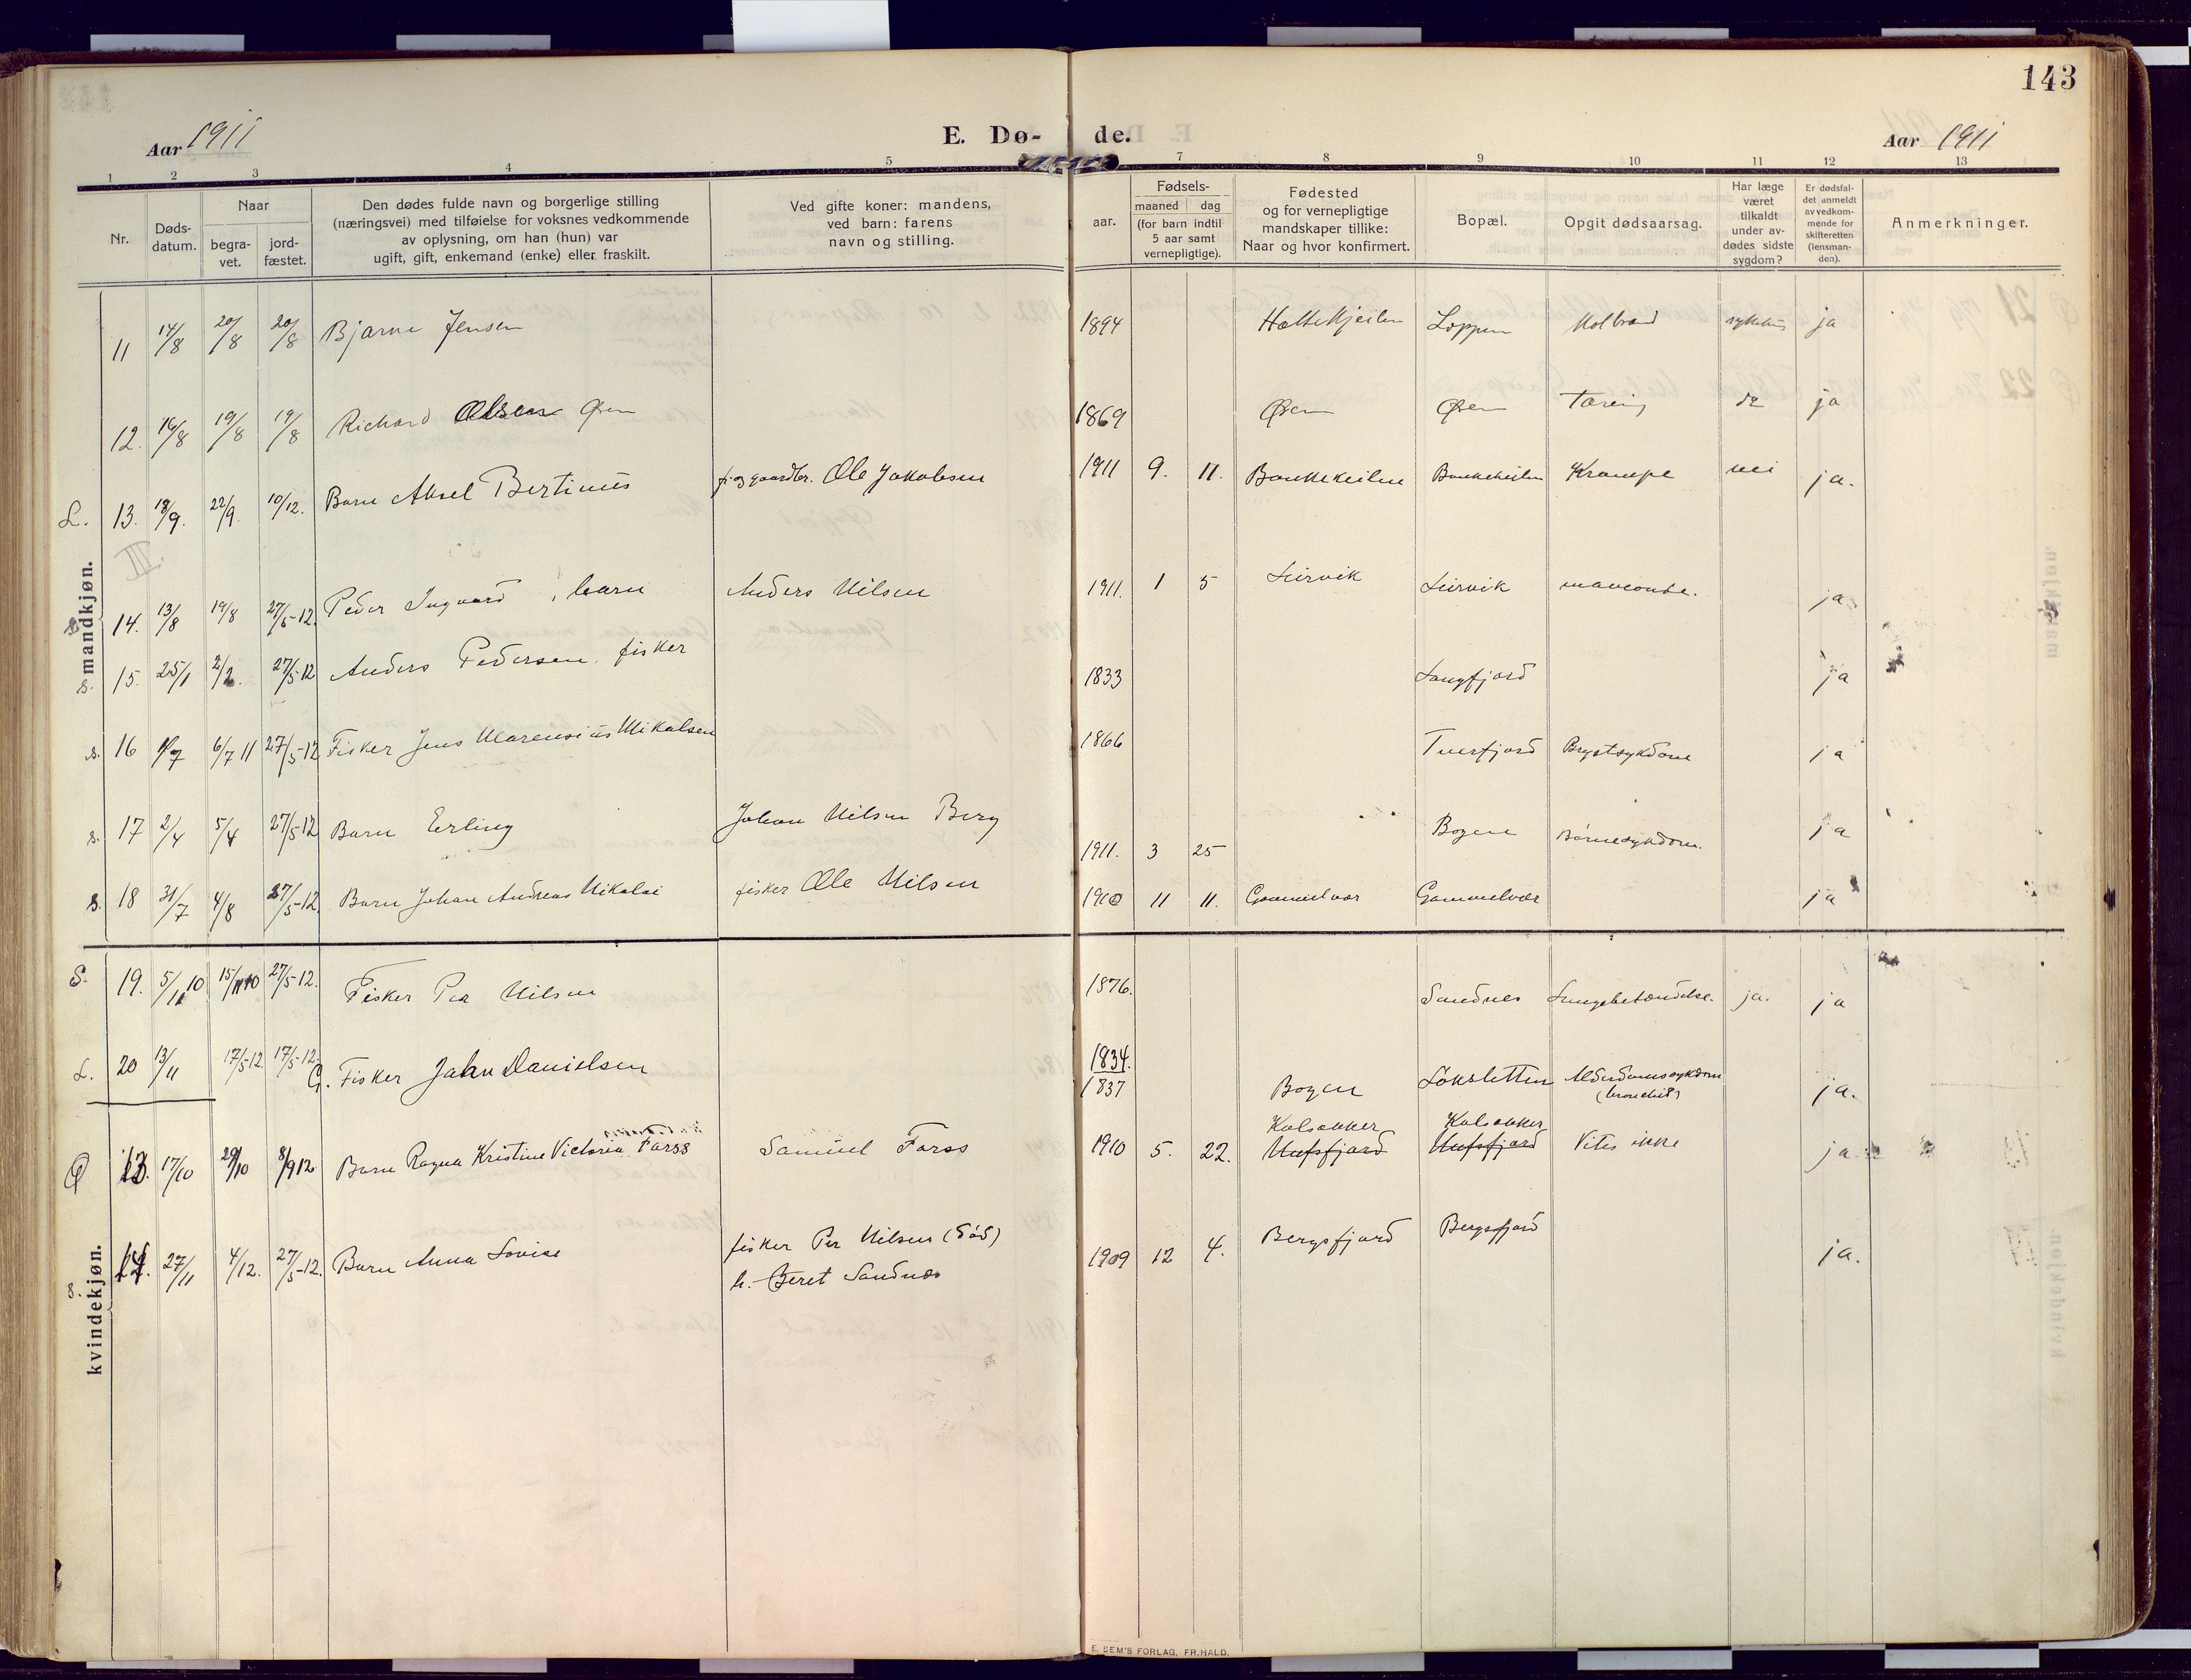 143
Aar 1911
E. Dø- de.
Aar 1911
1 2 3 4 5 7 8 9 10 11 12 13
Nr.
Døds-
datum.
Naar
begra-
vet.
jord-
fæstet.
Den dødes fulde navn og borgerlige stilling
(næringsvei) med tilføielse for voksnes vedkommende
av oplysning, om han (hun) var
ugift, gift, enkemand (enke) eller fraskilt.
Ved gifte koner: mandens,
ved barn: farens
navn og stilling.
aar.
Fødsels-
maaned dag
(for barn indtil
5 aar samt
vernepligtige).
Fødested
og for vernepligtige
mandskaper tillike:
Naar og hvor konfirmert.
Bopæl.
Opgit dødsaarsag.
Har læge
været
tilkaldt
under av-
dødes sidste
sygdom?
Er dødsfal-
det anmeldt
av vedkom-
mende for
skifteretten
(lensman-
den).
Anmerkninger.
mandkjøn.
11 14/8 20/8 20/8 Bjarne Jensen 1894 Loppen Kolbrand sykehus ja
12. 16/8 19/8 19/8 Richard Olsen Øren 1869 Øren Øren Tæring ja
L. 13. 18/9. 22/9. 10/12. Barn Aksel Bertinus f. og gaardbr. Ole Jakobsen 1911 9. 11. Bankekeilen Bankekeilen Krampe nei ja.
III.
14. 13/8 19/8 27/5-12. Peder Ingvard, barn Anders Nilsen 1911. 1 5 Leirvik Leirvik maveonde. ja
s. 15. 25/1 2/2. 27/5-12 Anders Pedersen, fisker 1833 Langfjord ja
s. 16 6/7 11 27/5-12 Fisker Jens Marensius Mikalsen 1866 Tverfjord Brystsykdom ja
s. 17 2/4 5/4 27/5-12 Barn Erling Johan Nilsen Berg 1911. 3 25 Bogen Barnesykdom. ja
s. 18 31/7 4/8 27/5-12. Barn Johan Andreas Nikolai fisker Ole Nilsen 1910 11 11. Gammelvær Gammelvær ja
S. 19. 5/11 10 15/11 10 27/5-12. Fisker Per Nilsen 1876. Sandnes Lungebetændelse. ja. ja
L. 20 13/11 17/5-12. 17/5-12. G. Fisker Jahn Danielsen 1834.
1837 Bogen Løksletten Alderdomssykdom
(bronchit) ja.
kvindekjøn.
Kalsakker Kalsakker
13. 17/10 29/10 8/9 12 Barn Ragna Kristine Victoria Farss Samuel Forss 1910 5. 22. Nufsfjord Nufsfjord Vites ikke ja
s. 14. 27/11 4/12. 27/5-12. Barn Anna Lovise fisker Per Nilsen (død) 1909 12 4. Bergsfjord Bergsfjord ja.
h. Beret Sandnes
E. SEM'S FORLAG, FR.HALD.